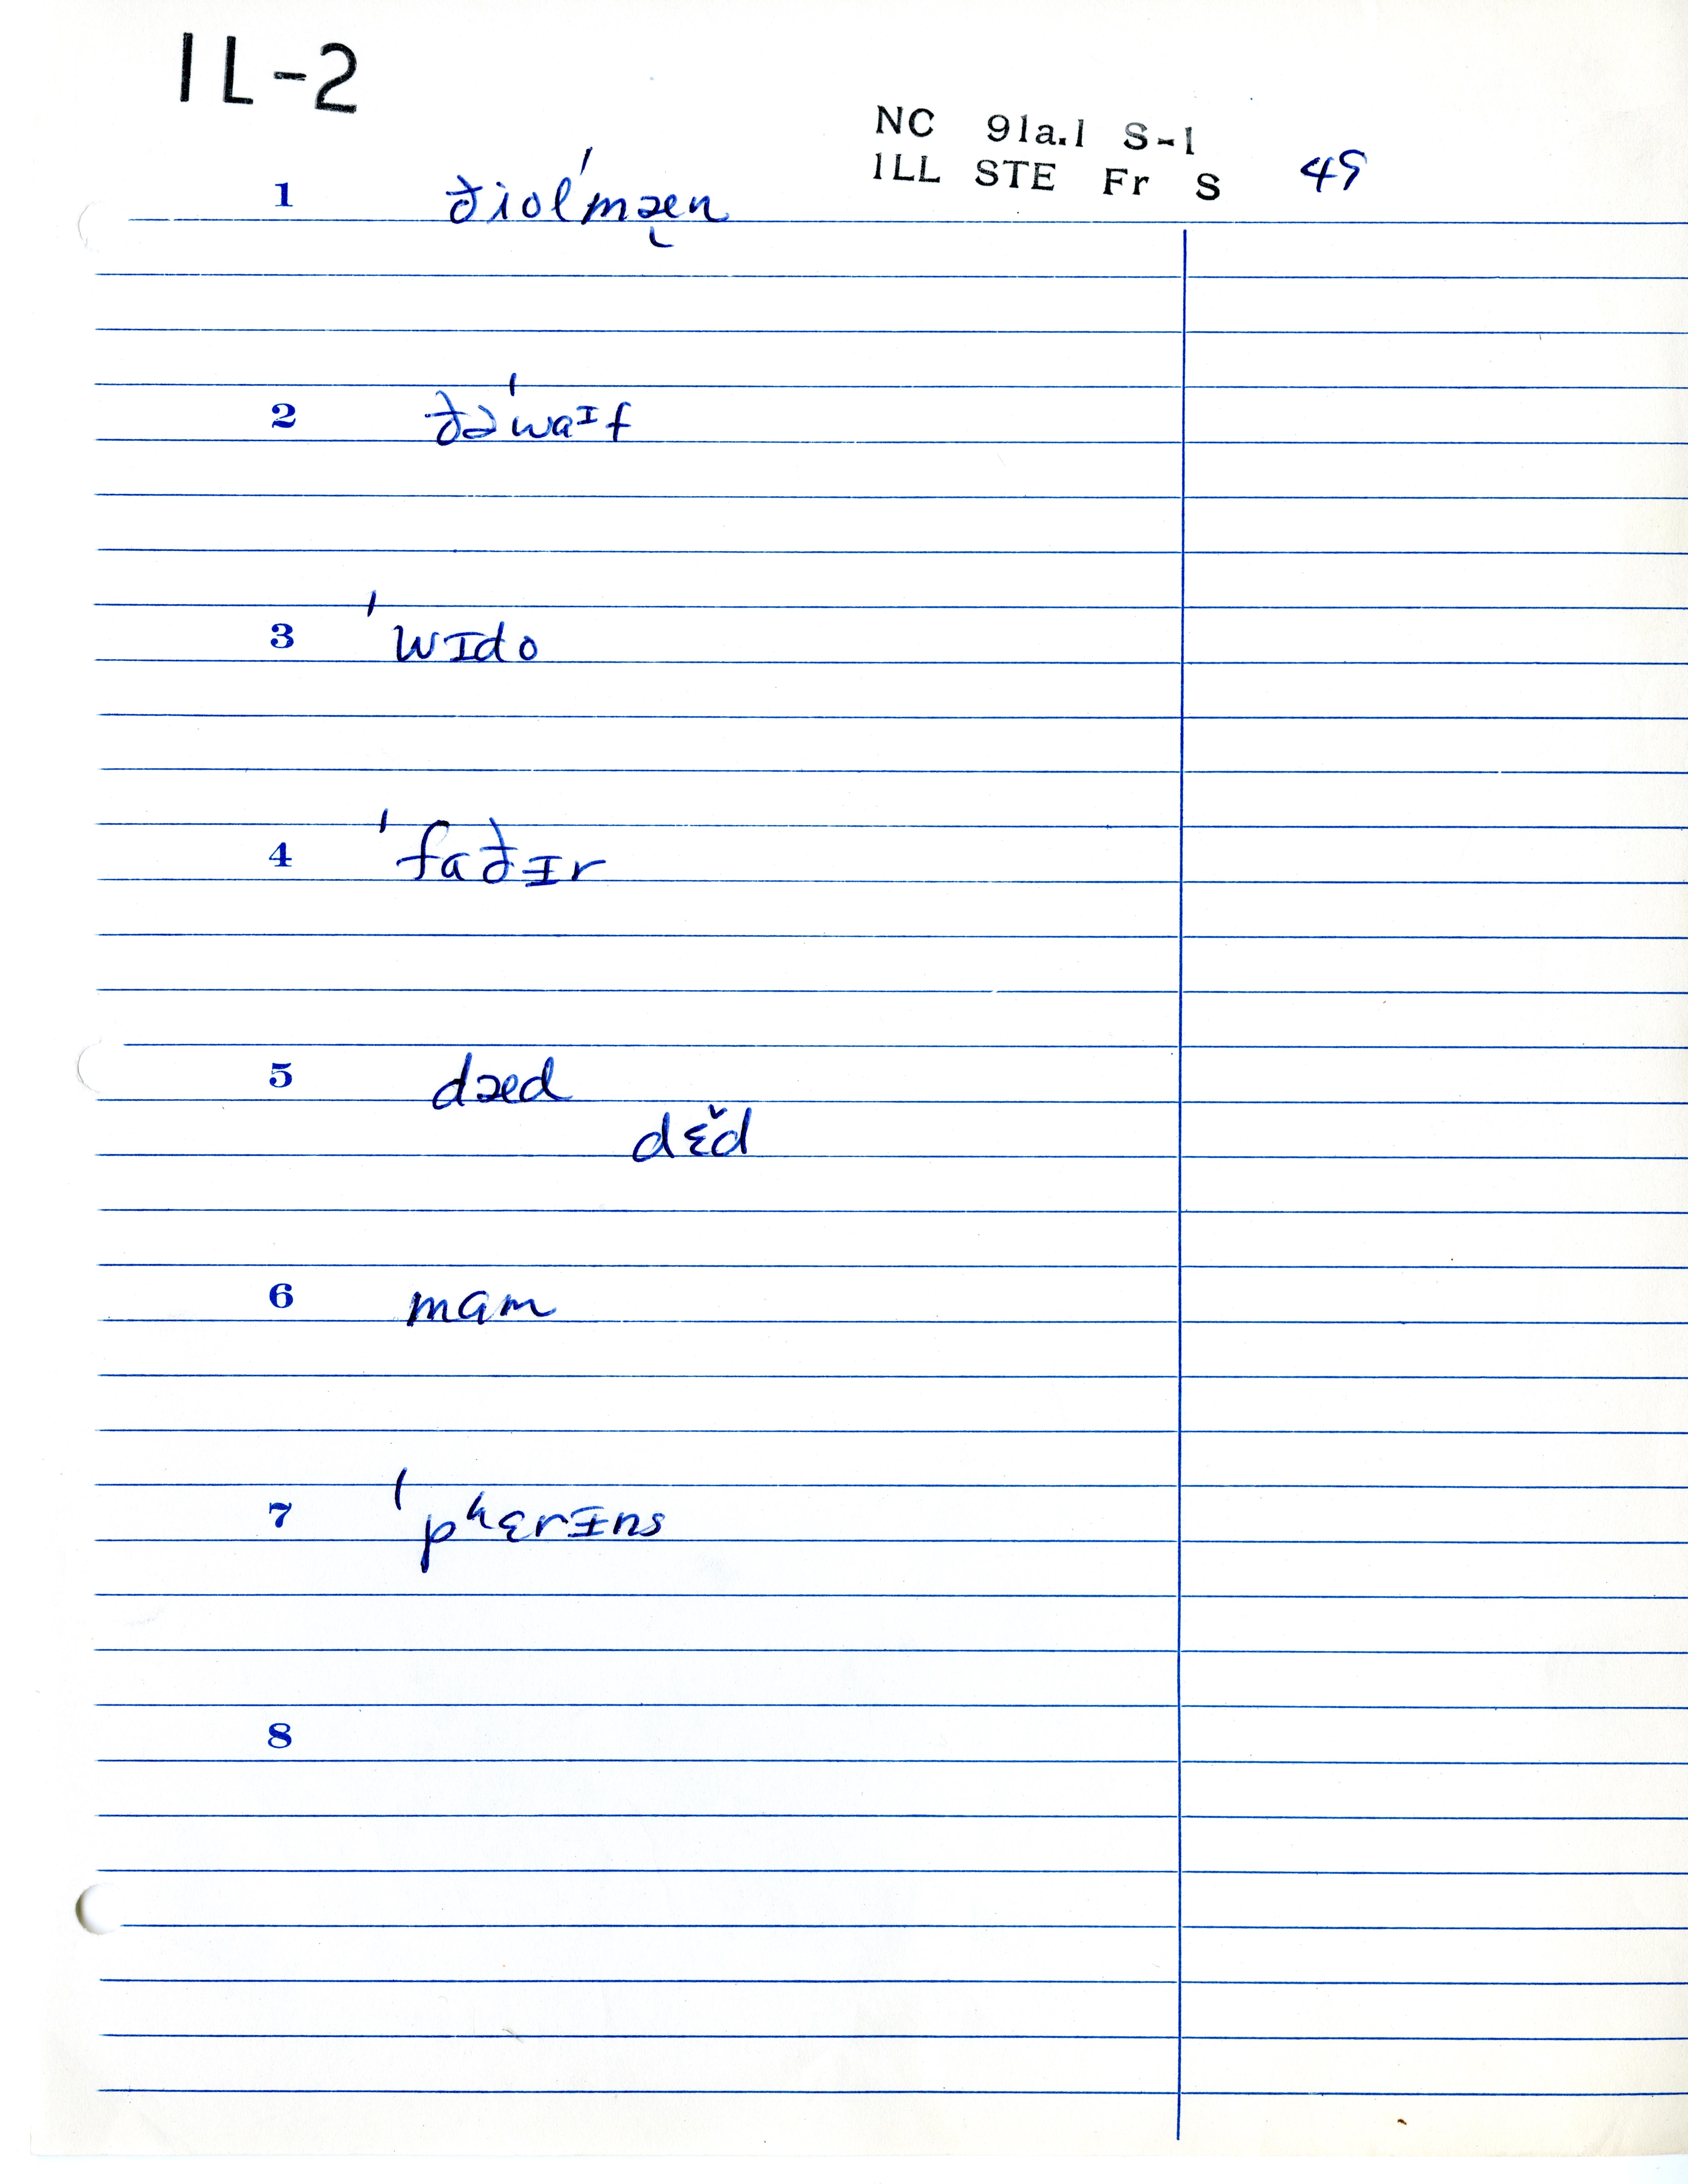 IL-2
NC 91a.1 S-1
ILL STE Fr S 49
1 ðiolˈmæ̨n
2 ðəˈwaᴵf
3 ˈwɪdo
4 ˈfaðɪr
5 dæd
dɛ̌d
6 mɑm
7 ˈpʰɛrɪns
8